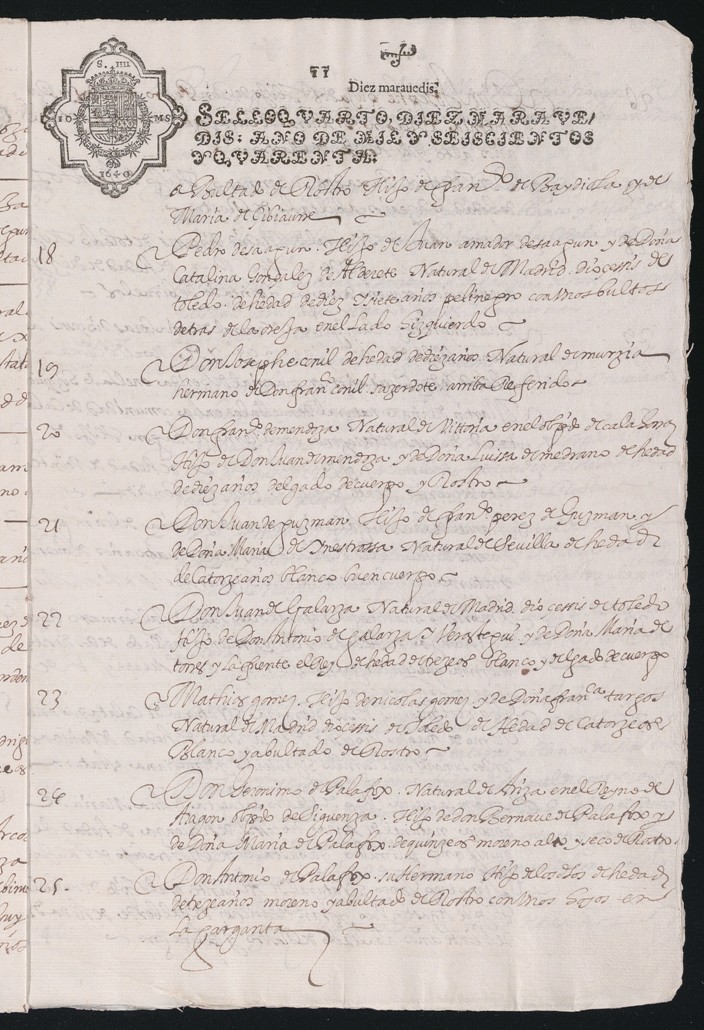 TT
Diez marauedis.
SELLO QVARTO, DIEZ MARAVE/
DIS: AÑO DE MIL Y SEISCIENTOS
Y QVARENTA:
S. IIII
1640
a Bultado de Rostro Hijo de fran.co de y de
Maria de
18 Pedro desaapun. Hijo de Juan amador desaapun y de Doña
Catalina Gonzalez de Alderete Natural de Madrid. diocessis de
toledo. de hedad de diez y siete años pelinegro con unos bultos
detras de la oreja en el Lado Izquierdo
19 Don Josephe conil de hedad de diez años. Natural de murzia
hermano de Don fran.co conil sazerdote arriba Referido
20 Don fran.co de mendoza Natural de Vittoria en el obp.do de calahorra
Hijo de Don Juan de mendoza y de Doña Luissa de medrano de hedad
de diez años delgado de cuerpo y Rostro
21 Don Juan de guzman Hijo de fran.co perez de Guzman y
de Doña Maria de Ynestrassa Natural de Sevilla de hedad de
de Catorze años blanco buen cuerpo
22 Don Juan de Galarza Natural de Madrid. diocessis de toledo
Hijo de Don Antonio de galarza y y de Doña Maria de
torres y la puente el Rey de hedad de treze os blanco y delgado de cuerpo
23 Mathias gomez. Hijo de nicolas gomez y de Doña fran.ca targos
Natural de Madrid diocessis de toledo de Hedad de Catorze os
Blanco y abultado de Rostro
24 Don Geronimo de Palafox. Natural de Ariza en el Reyno de
Aragon obp.do de Siguenza. Hijo de don Bernave de Palafox y
de Doña Maria de Palafox. de quinze os moreno alto y seco de Rostro.
25. Don Antonio de Palafox. su Hermano Hijo de los dhos de hedad de
de treze años moreno y abultado de Rostro con unos hoyos en
La garganta